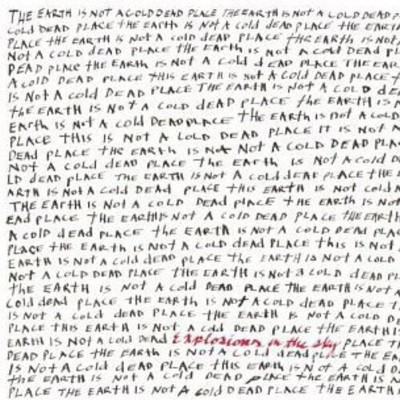 THE EARTH IS NOT A COLD DEAD PLACE THE EARTH IS NOT A COLD DEAD P
COLD DEAD PLACE THE EARTH IS NOT A COLD DEAD PLACE THE EARTH
PLACE THE EARTH IS NOT A COLD DEAD PLACE THE EARTH IS NOT
NOT A COLD DEAD PLACE THE EARTH IS NOT A COLD DEAD PL
DEAD PLACE THE EARTH IS NOT A COLD DEAD PLACE THE EAR
A COLD DEAD PLACE THIS EARTH IS NOT A COLD DEAD PLACE T
IS NOT A COLD DEAD PLACE THE EARTH IS NOT A COLD DE
THE EARTH IS NOT A COLD DEAD PLACE THE EARTH IS N
EARTH IS NOT A COLD DEAD PLACE THE EARTH IS NOT A COLD
PLACE THIS IS NOT A COLD DEAD PLACE IT IS NOT A
DEAD PLACE THE EARTH IS NOT A COLD DEAD PLACE THE EARTH
NOT A COLD DEAD PLACE THE EARTH IS NOT A COLD D
LD DEAD PLACE THE EARTH IS NOT A COLD DEAD PLACE THE E
ARTH IS NOT A COLD DEAD PLACE THIS EARTH IS NOT COLD A
THE EARTH IS NOT A COLD DEAD PLACE THE EARTH IS NOT
EAD PLACE THE EARTH IS NOT A COLD DEAD PLACE THE EARTH
A COLD DEAD PLACE THE EARTH IS NOT A COLD DEAD PLACE
PLACE THE EARTH IS NOT A COLD DEAD PLACE THIS IS NOT
EARTH IS NOT A COLD DEAD PLACE THE EARTH IS NOT A COLD
NOT A COLD DEAD PLACE THE EARTH IS NOT A COLD DEAD PL
THE EARTH IS NOT A COLD DEAD PLACE THE EARTH IS NOT A
COLD DEAD PLACE THE EARTH IS NOT A COLD DEAD PLACE T
IS NOT A COLD DEAD PLACE THE EARTH IS NOT A COLD D
PLACE THIS EARTH IS NOT A COLD DEAD PLACE THE EARTH IS
EARTH IS NOT A COLD DEAD Explosions in the sky PLACE T
DEAD PLACE THE EARTH IS NOT A COLD DEAD PLACE THE EA
IS NOT A COLD DEAD PLACE THIS EARTH IS NOT A COLD D
THE EARTH IS NOT A COLD DEAD PLACE THE EARTH IS N
PLACE THE EARTH IS NOT A COLD DEAD PLACE THE EARTH IS